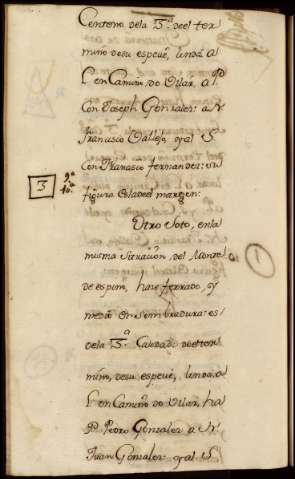 Centeno dela 3.ª deel ter
mino desu espezie, linda al
L en Camino do Vilar, al P.
Con Joseph Gonzalez: a N
Francisco Vallejo, y al S
Con Francisco fernandez: su
figura Ela del margen:
3
Otro Soto, en la
misma Situazion, del Monte
de espino, haze ferrado y
medio En Sembradura: es
dela 3.ª Calidad: de el ter
mino, desu espezie, linda, a
L en Camino do Vilar, ha
P. Pedro Gonzalez a N
Juan Gonzalez y al S
1